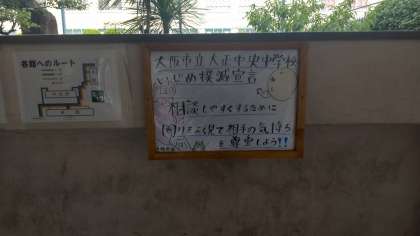 各館へのルート
大阪市立大正中央中学校
いじめ撲滅宣言
相談しやすくするために
周りをよく見て相手の気持ち
を尊重しよう!!